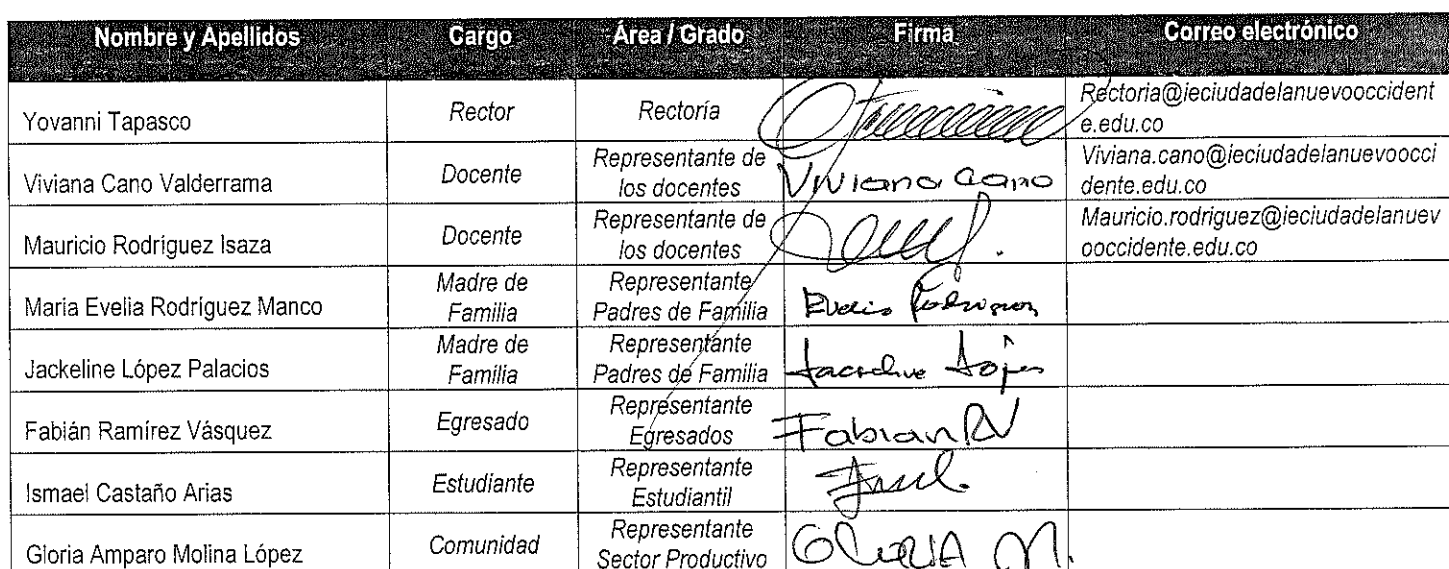 Nombre y Apellidos Cargo Área / Grado Firma Correo electrónico
Yovanni Tapasco Rector Rectoría Rectoria@ieciudadelanuevooccident
e.edu.co
Viviana Cano Valderrama Docente Representante de
los docentes Viviana Cano Viviana.cano@ieciudadelanuevoocci
dente.edu.co
Mauricio Rodríguez Isaza Docente Representante de
los docentes Mauricio.rodriguez@ieciudadelanuev
ooccidente.edu.co
Maria Evelia Rodríguez Manco Madre de
Familia Representante
Padres de Familia Evelia Rodriguez
Jackeline López Palacios Madre de
Familia Representante
Padres de Familia
Fabián Ramírez Vásquez Egresado Representante
Egresados Fabian RV
Ismael Castaño Arias Estudiante Representante
Estudiantil
Gloria Amparo Molina López Comunidad Representante
Sector Productivo GLORIA M.